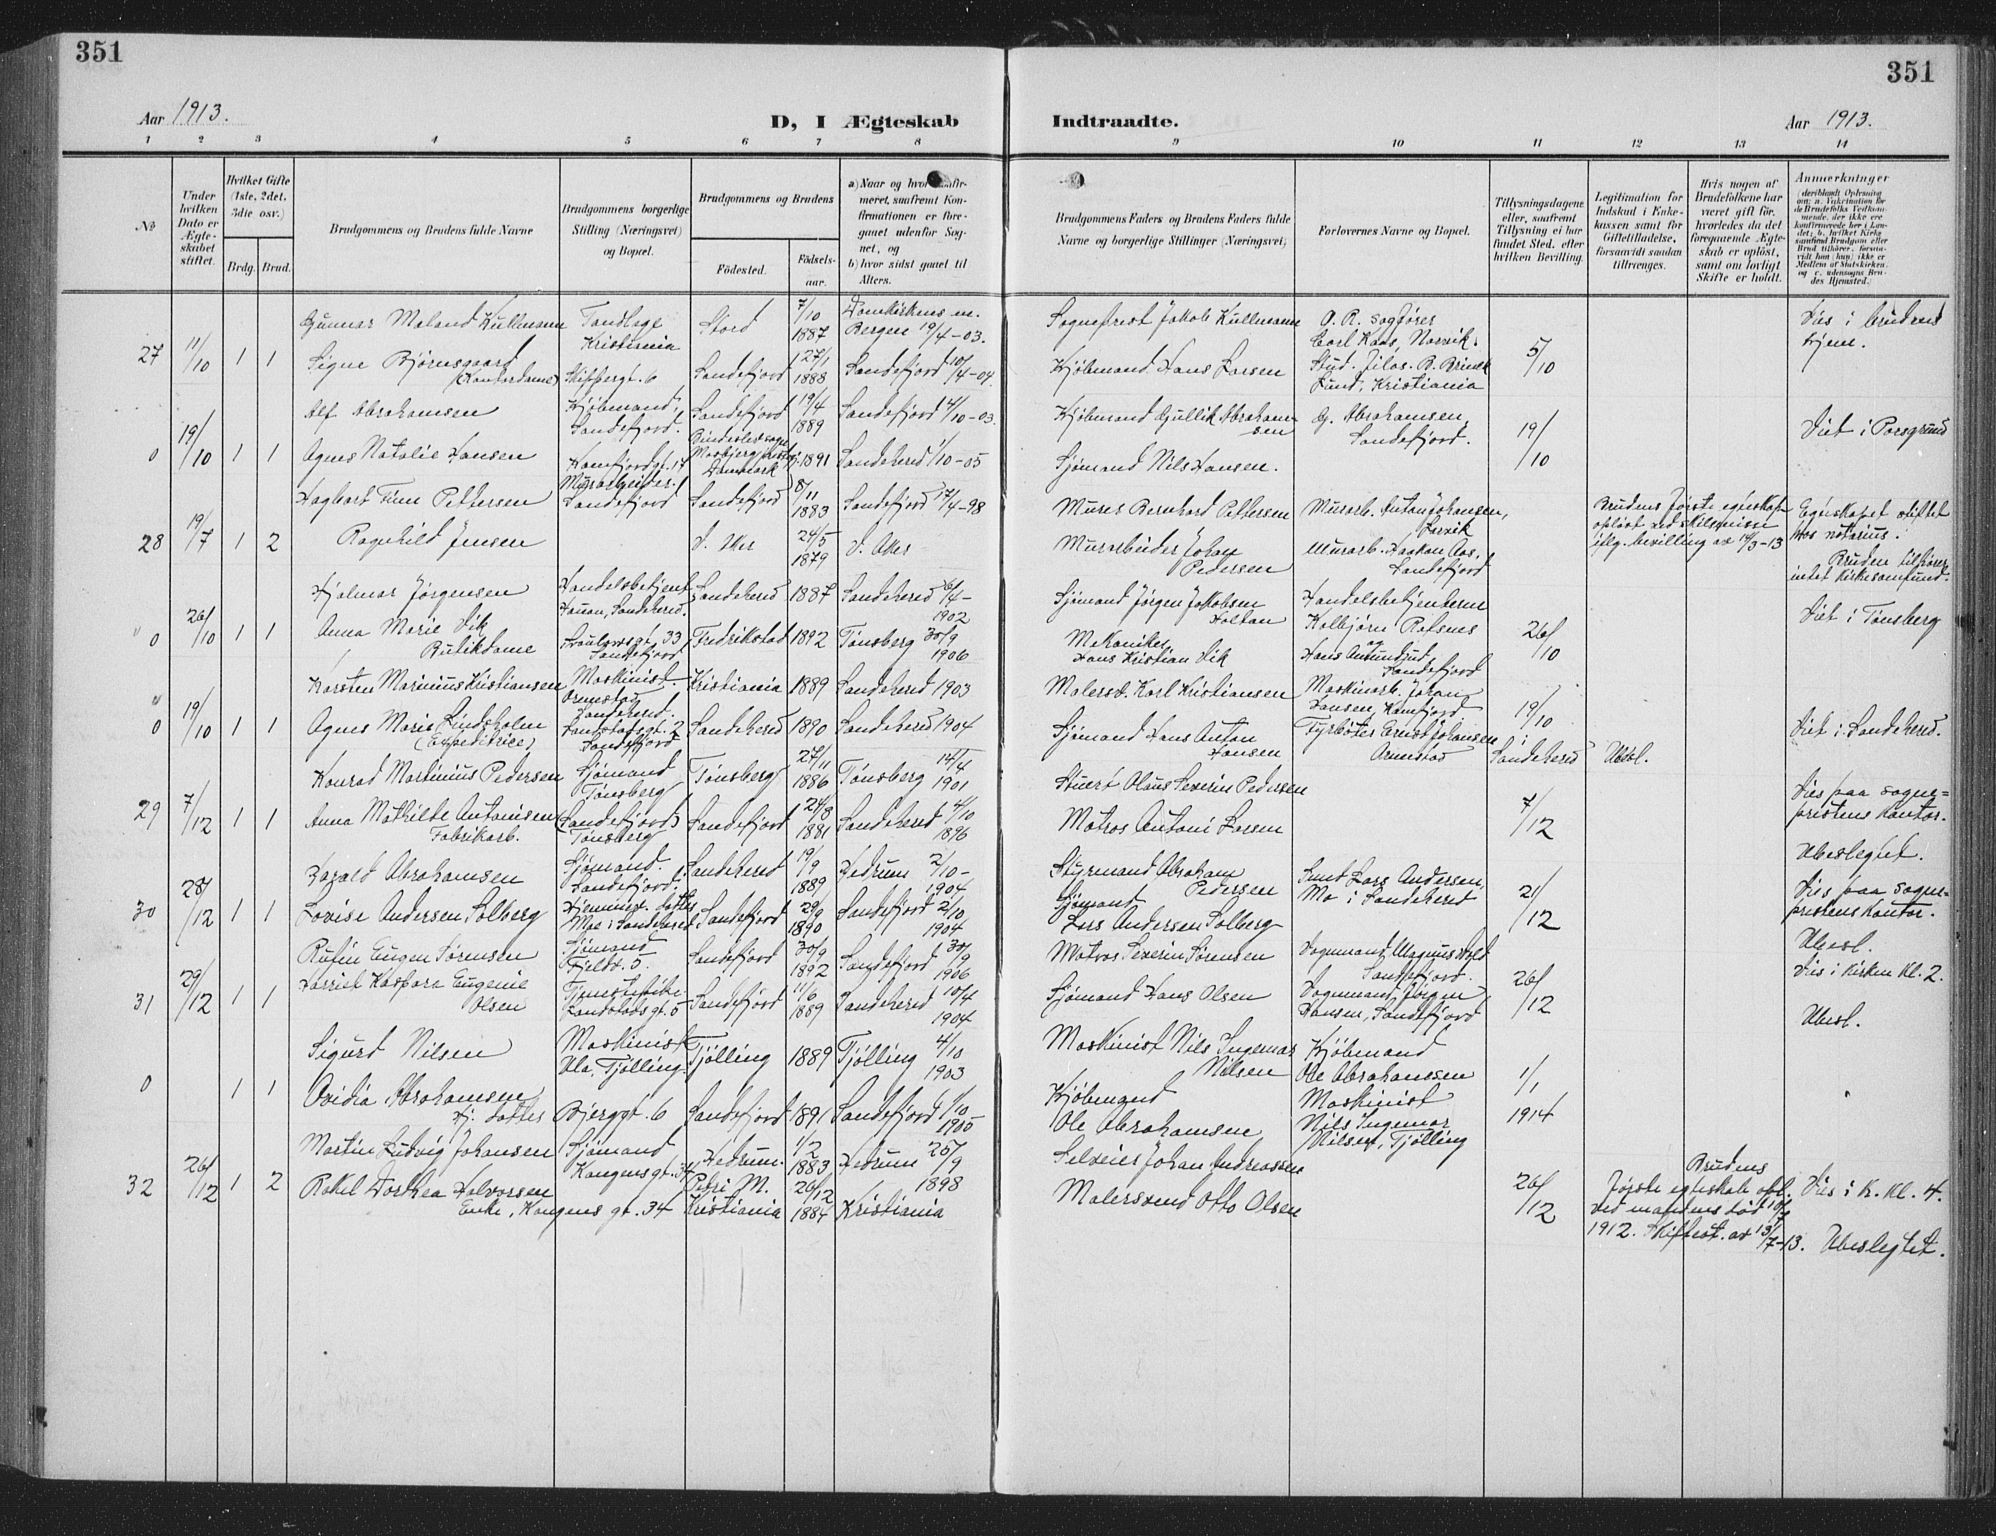 351
351
Aar 1913.
D, I Ægteskab
Indtraadte.
Aar 1913.
1 2 3 4 5 6 7 8 9 10 11 12 13 14
No
Under hvilken Dato er Ægteskabet stiftet.
Hvilket Gifte (1ste, 2det, 3die osv.)
Brdg. Brud.
Brudgommens og Brudens fulde Navne
Brudgommens borgerlige Stilling (Næringsvei) og Bopæl.
Brudgommens og Brudens
Fødested.
Fødselsaar.
a) Naar og hvor konfirmeret, saafremt Konfirmationen er foregaaet udenfor Sognet, og
b) hvor sidst gaaet til Alters.
Brudgommens Faders og Brudens Faders fulde Navne og borgerlige Stillinger (Næringsvei)
Forlovernes Navne og Bopæl.
Tillysningsdagene eller, saafremt Tillysning ei har fundet Sted, efter hvilken Bevilling.
Legitimation for Indskud i Enkekassen samt for Giftetilladelse, forsaavidt saadan tiltrænges.
Hvis nogen af Brudefolkene har været gift før, hvorledes da det foregaaende Ægteskab er opløst, samt om lovligt Skifte er holdt.
Anmerkninger
(deriblandt Oplysning om: a. Vakcination for de Brudefolks Vedkommende, der ikke ere konfirmerede her i Landet; b. hvilket Kirkesamfund Brudgom eller Brud tilhører, forsaavidt han (hun) ikke er Medlem af Statskirken, og c. udensogns Brudes Hjemsted.)
Gunnar Maland Kullmann Tandlæge Kristiania Stord 7/10 1887 Domkirkens m. Bergen 19/4-03. Sogneprest Jakob Kullmann O. R. sagfører Carl Kaas, Narvik. Vies i brudens hjem.
27 11/10 1 1 Signe Bjørnsgaard (Kontordame) Skippergt. 6 Sandefjord 27/1 1888 Sandefjord 10/4-04 Kjøbmand Hans Larsen Stud. filos. B. Brinck Lund, Kristiania 5/10
Alf Abrahamsen Kjøbmand, Sandefjord. Sandefjord 19/4 1889 Sandefjord 4/10-03. Kjøbmand Gullik Abrahamsen G. Abrahamsen, Sandefjord. Viet i Porsgrund
0 19/10 1 1 Agnes Natalie Hansen Kamfjordgt. 17 Danmark 1891 Sandeherred 1/10-05 Sjømand Nils Hansen. 19/10
Hagbart Finn Pettersen Murarbeider. Sandefjord Sandefjord 8/11 1883 Sandefjord 17/4-98 Murer Bernhard Pettersen Murarb. Anton Johansen, Larvik Brudens første egteskap opløst ved skilsmisse iflg. bevilling av 19/3-13 Egteskapet stiftet hos notarius.
28 19/7 1 2 Ragnhild Jensen V. Aker 24/5 1879 V. Aker Murarbeider Johan Pedersen Murarb. Haakon Aas, Sandefjord Bruden tilhører intet kirkesamfund.
Hjalmar Jørgensen Handelsbetjent Hauan, Sandeherred. Sandeherred 1887 Sandeherred 6/4-1902 Sjømand Jørgen Jakobsen Holtan Handelsbetjenterne Kolbjørn Rafsnes og Viet i Tønsberg
" 0 26/10 1 1 Anna Marie Vik Butikdame 33 Sandefjord Fredrikstad 1892 Tønsberg 30/9 1906 Mekaniker Hans Kristian Vik Hans Sandefjord 26/10
Karsten Marinius Kristiansen Maskinist. Ormestad Sandeherred. Kristiania 1889 Sandeherred 1903 Malersv. Karl Kristiansen Maskinarb. Johan Hansen, Kamfjord
" 0 19/10 1 1 Agnes Marie Lindholm (Expeditrice) Landstadsgt. 2 Sandefjord Sandeherred 1890 Sandeherred 1904 Sjømand Hans Anton Hansen Fyrbøter Ernst Johansen Ormestad 19/10 i Sandeherred Ubesl. Viet i Sandeherred.
Konrad Martinius Pedersen Sjømand Tønsberg Tønsberg 27/11 1886 Tønsberg 14/4 1901 Stuert Olaus Severin Pedersen Vies paa sogneprestens kontor.
29 7/12 1 1 Anna Mathilde Antonisen Fabrikarb. (Sandefjord) Tønsberg Sandefjord 24/8 1881 Sandeherred 4/10 1896 Matros Antoni Larsen 7/12 Ubeslegtet.
Harald Abrahamsen Sjømand. Sandefjord. Sandeherred 19/9 1889 Hedrum 2/10-1904 Styrmand Abraham Pedersen Smed Lars Andersen, Mo i Sandeherred Vies paa sogneprestens kontor.
30 28/12 1 1 Lovise Andersen Solberg Hjemmev. datter Moe i Sandeherred Sandefjord 29/9 1890 Sandefjord 2/10 1904 Sjømand Lars Andersen Solberg 21/12 Ubesl.
Rufin Eugen Sørensen Sjømand Fjeldv. 5. Sandefjord 30/9 1892 Sandefjord 30/9 1906 Matros Severin Sørensen Vognmand Magnus Sandefjord. Vies i kirken kl. 2.
31 29/12 1 1 Harriet Kaspara Eugenie Olsen Tjenestepike Landstadsgt. 5 Sandefjord 11/6 1889 Sandeherred 10/4 1904 Sjømand Hans Olsen Vognmand Jørgen Hansen, Sandefjord 26/12 Ubesl.
Sigurd Nilsen Maskinist Ula, Tjølling. Tjølling 1889 Tjølling 4/10 1903 Maskinist Nils Ingemar Nilsen Kjøbmand Ole Abrahamsen
0 1 1 Ovidia Abrahamsen Hj. datter Bjerggt. 6 Sandefjord 1891 Sandefjord 1/10 1905 Kjøbmand Ole Abrahamsen Maskinist Nils Ingemar Nilsen, Tjølling 1/1 1914
Martin Ludvig Johansen Sjømand Kongensgt. 34 Hedrum. 1/2 1883 Hedrum 25/9 1898 Selveier Johan Andreassen Brudens
32 26/12 1 2 Rakel Dorthea Halvorsen Enke, Kongens gt. 34 Petri M. Kristiania 26/12 1884 Kristiania Malersvend Otto Olsen 26/12 første egteskab opl. ved mandens død 10/7 1912. Skifteat. av 13/7-13. Vies i K. kl. 4. Ubeslegtet.